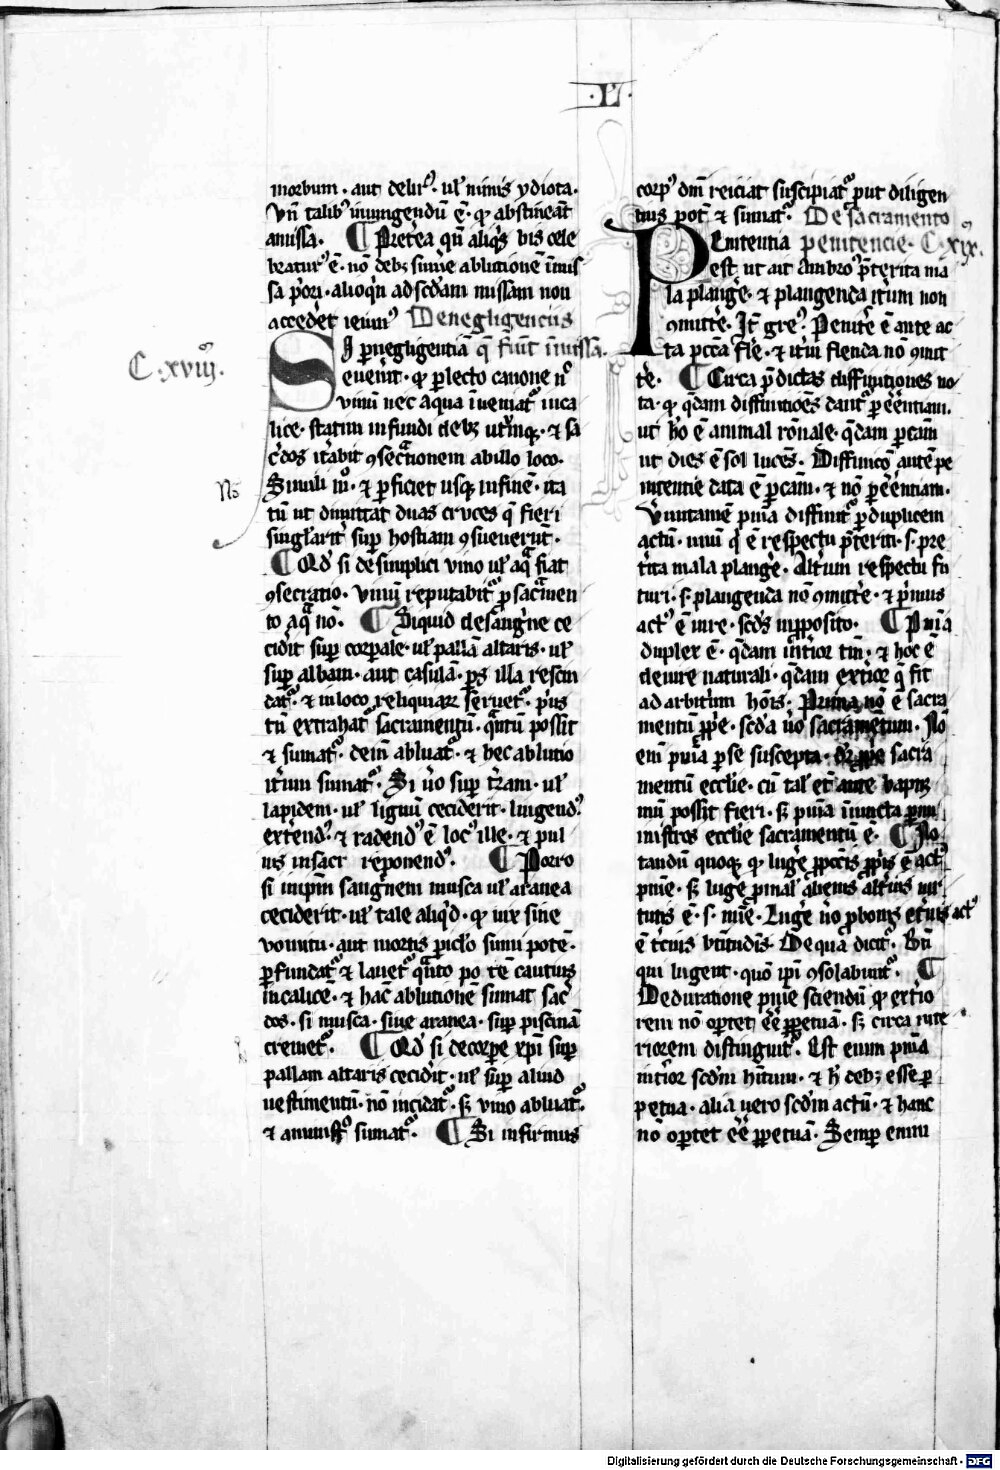 ·L·
morbum · aut delirꝰ · ul̄ nimis ydiota ·
Vn̄ talibꝰ iniungendū ē · ꝙ abstineāt
a missa · ¶ Pret̄ea qn̄ aliq̄s bis cele
braturꝰ ē · nō debꝫ sum̄e ablutionē ī mis
sa p̄ori · alioq̄n ad scd̄am missam non
accedēt ieiunꝰ De negligenciis
C · xviij ·
Si p̱ negligentiā q̄ fiūt ī missa ·
evenit · ꝙ p̱lecto canone nͦ
vinū nec aqua īveniatᷣ in ca
lice · statim infundi debꝫ utrūqꝫ · ⁊ sa
c̄dos it̄abit ꝯsec̄tionem ab illo loco ·
Nō
Simili mͦ · ⁊ p̱ficiet usqꝫ in finē · ita
tn̄ ut dimittat duas cruces q̄ fieri
singl̄arit̄ sup̱ hostiam ꝯsueverūt ·
¶ Qd̄ si de simplici vino ul̄ aq̄ fiat
ꝯsecratio · vinū reputabitᷣ p̱ sac̄men
to aq̄ nō · ¶ Si quid de sanḡne ce
cidit sup̱ corp̱ale · ul̄ pallā altaris · ul̄
sup̱ albam · aut casulā · p̱s illa rescin
datᷣ · ⁊ in loco reliquiaꝝ servetᷣ · p̄us
tn̄ extrahatᷣ sacramentū · q̄ntū possit
⁊ sumatᷣ · dein̄ abluatᷣ · ⁊ hec ablutio
it̄um sumatᷣ · Si v̄o sup̱ t̄ram · ul̄
lapidem · ul̄ lignū ceciderit · lingendꝰ
ext̄endꝰ · ⁊ radendꝰ ē locꝰ ille · ⁊ pul
vis in sacr reponendꝰ · ¶ Porro
si in ip̄m sanḡnem musca ul̄ aranea
ceciderit · ul̄ tale aliq̄d · ꝙ vix sine
vomitu · aut mortis p̱icl̄o sumi potē ·
p̱fundatᷣ ⁊ lavetᷣ q̄nto po tē cautius
in calicē · ⁊ hāc ablutionē sumat sac̄
dos · si musca · sive aranea · sup̱ piscinā
cremetᷣ · ¶ Qd̄ si de corp̱e xp̄i sup̱
pallam altaris cecid̄it · ul̄ sup̱ aliud
vestimentū · nō incidatᷣ · sꝫ vino abluatᷣ ·
⁊ a ministͦ sumatᷣ · ¶ Si infirmus
corpꝰ dn̄i reiciat suscipiatᷣ put diligen
tius pot̄ ⁊ sumatᷣ · De sacramento
Penitentia penitencie · C · xix ·
est ut ait Ambroꝰ p̄terita ma
la planḡe · ⁊ plangenda it̄um non
ꝯmitt̄e · It̄ greꝰ · Penit̄e ē ante ac
ta pcc̄a fl̄e · ⁊ it̄um flenda nō ꝯmit
t̄e · ¶ Circa p̄dictas diffinitiones no
ta · ꝙ q̄dam diffinitiōes dantᷣ p̱ ēentiam ·
ut hō ē animal rōnale · q̄dam p̱ cām
ut dies ē sol lucēs · Diffinicō autē pe
nitentie data ē p̱ cām · ⁊ nō p̱ ēentiam ·
Vn̄ītamē pn̄ia diffinitᷣ p̱ duplicem
actū · unū q̄ ē respectu p̄teriti · s · pre
t̄ita mala planḡe · Alt̄um respectu fu
turi · s · plangenda nō ꝯmitt̄e · ⁊ p̄mus
actꝰ ē in re · scd̄s in p̱posito · ¶ Pn̄ia
duplex ē · q̄dam int̄ior tm̄ · ⁊ hoc ē
de iure naturali · q̄dam ext̄ior q̄ fit
ad arbitrium hōis · Prima nō ē sacra
mentū pp̱e · scd̄a v̄o sacramētum · Nō
em̄ pn̄ia p̱ se suscepta · dr̄ pp̱e sacra
mentū eccl̄ie · cū tal̄ et̄ ante baptis
mū possit fieri · sꝫ pn̄ia īiuncta p̱ mi
nistros eccl̄ie sacramentū ē · ¶ No
tandū quoqꝫ ꝙ luḡe p̱ pcc̄is pp̱is ē actꝰ
pn̄ie · sꝫ luḡe p̱ mal̄ al̄ienis alt̄ius vir
tutis ē · s · mīe · Luḡe v̄o p̱ bonis et̄nis actꝰ
ē t̄cius btītudīs · De qua dicitᷣ · Bt̄i
qui lugent · quō ip̄i ꝯsolabuntᷣ · ¶
De duratione pn̄ie sciendū ꝙ ext̄io
rem nō op̱tet ēe p̱petuā · sꝫ circa inte
riorem distinguitᷣ · Est enim pn̄ia
int̄ior scd̄m hītum · ⁊ h̄ debꝫ esse p̱
petua · alia vero scd̄m actū · ⁊ hanc
nō op̱tet ēe p̱petuā · Semp̱ enim
Digitalisierung gefördert durch die Deutsche Forschungsgemeinschaft · DFG